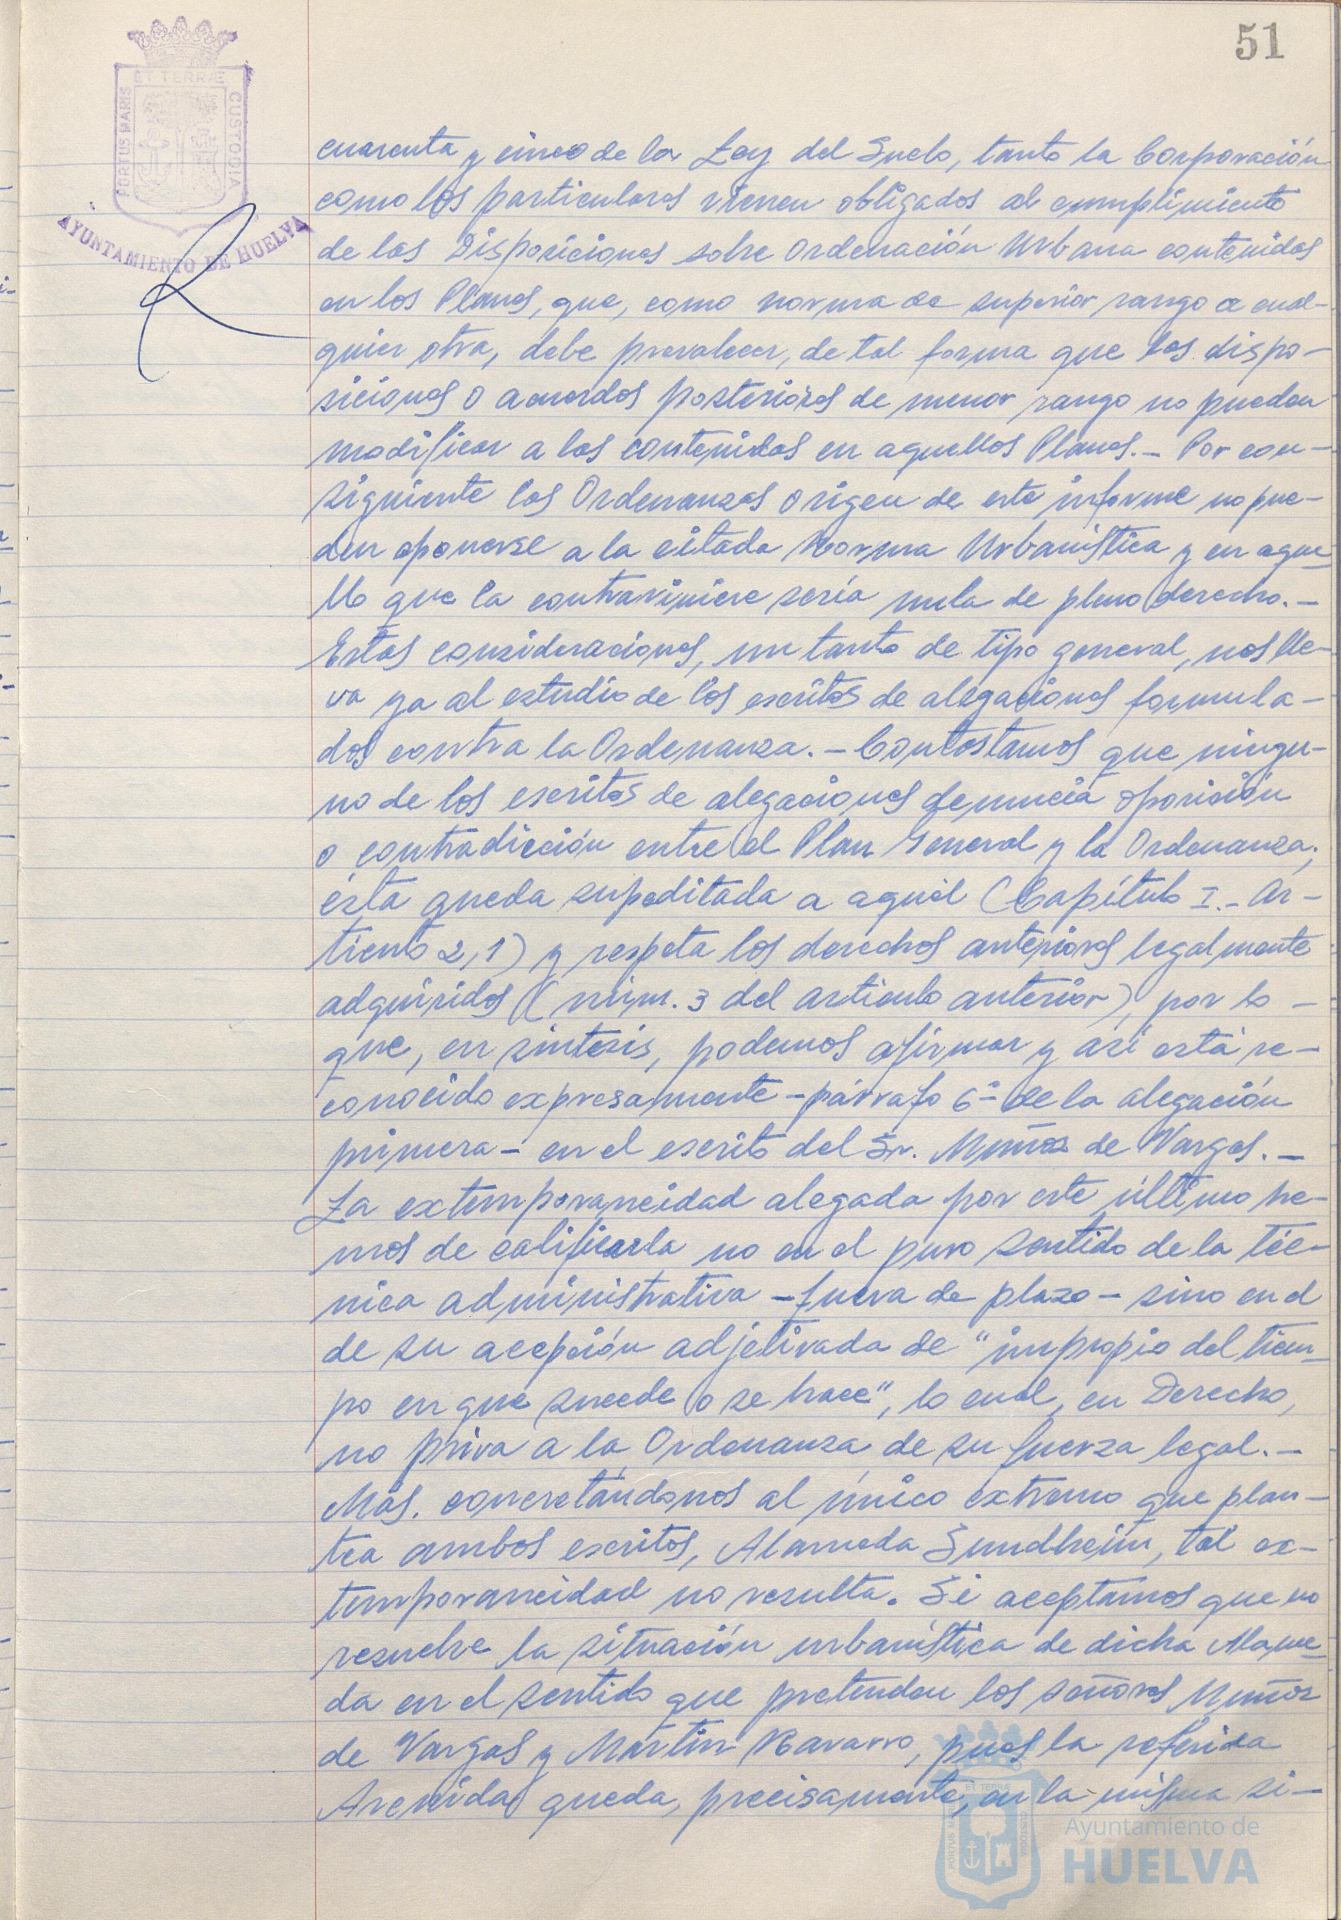 51
ET TERRÆ
PORTUS MARIS
CUSTODIA
AYUNTAMIENTO DE HUELVA
cuarenta y cinco de la Ley del Suelo, tanto la Corporación
como los particulares vienen obligados al cumplimiento
de las Disposiciones sobre Ordenación Urbana contenidas
en los Planes, que, como norma de superior rango a cual-
quier otra, debe prevalecer, de tal forma que las dispo-
siciones o acuerdos posteriores de menor rango no pueden
modificar a las contenidas en aquellos Planes.- Por con-
siguiente las Ordenanzas origen de este informe no pue-
den oponerse a la citada Norma Urbanística y en aque-
llo que la contraviniere sería nula de pleno derecho.-
Estas consideraciones, un tanto de tipo general, nos lle-
va ya al estudio de los escritos de alegaciones formula-
dos contra la Ordenanza.- Contestamos que ningu-
no de los escritos de alegaciones denuncia oposición
o contradicción entre el Plan General y la Ordenanza;
ésta queda supeditada a aquél (Capítulo I.- Ar-
tículo 2,1) y respeta los derechos anteriores legalmente
adquiridos (núm. 3 del artículo anterior), por lo -
que, en síntesis, podemos afirmar y así está re-
conocido expresamente -párrafo 6º de la alegación
primera- en el escrito del Sr. Muñoz de Vargas.-
La extemporaneidad alegada por este último he-
mos de calificarla no en el puro sentido de la téc-
nica administrativa -fuera de plazo- sino en el
de su acepción adjetivada de "impropio del tiem-
po en que sucede o se hace", lo cual, en Derecho,
no priva a la Ordenanza de su fuerza legal.-
Más. concretándonos al único extremo que plan-
tea ambos escritos, Alameda Sundheim, tal ex-
temporaneidad no resulta. Si aceptamos que no
resuelve la situación urbanística de dicha Alame-
da en el sentido que pretenden los señores Muñoz
de Vargas y Martín Navarro, pues la referida
Avenida queda, precisamente, en la misma si-
ET TERRÆ
PORTUS MARIS
CUSTODIA
Ayuntamiento de
HUELVA